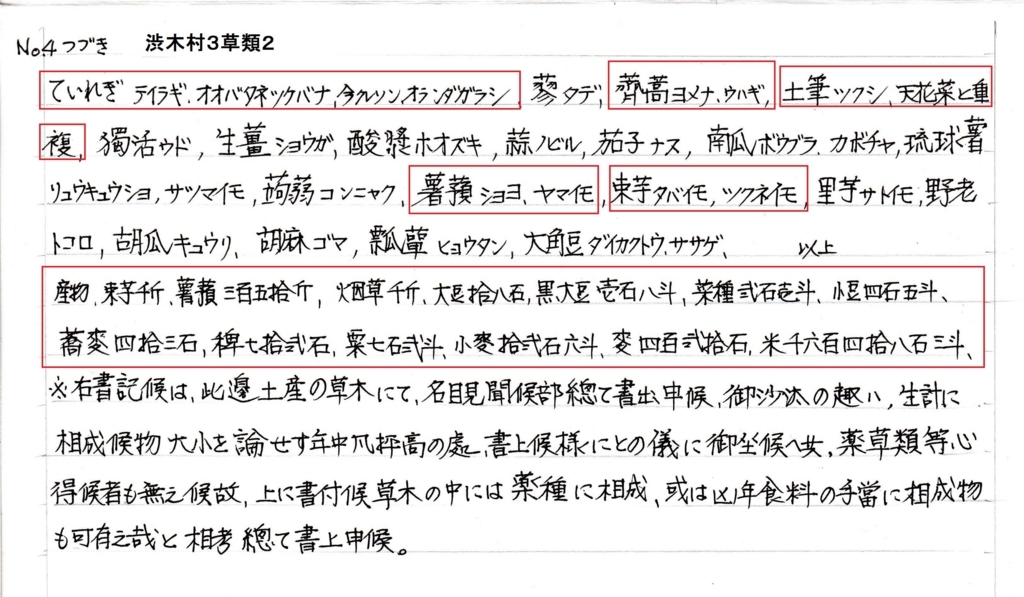 No.4つづき 渋木村3草類2
ていれぎ テイラギ、オオバタネツケバナ、今クレソン、オランダガラシ、蓼タデ、齊蒿ヨメナ、ウハギ、土筆ツクシ、天花菜と重
複、獨活ウド、生薑ショウガ、酸漿ホオズキ、蒜ノビル、茄子ナス、南瓜ボウブラ、カボチャ、琉球薯
リュウキュウショ、サツマイモ、蒟蒻コンニャク、薯蕷ショヨ、ヤマイモ、束芋タバイモ、ツクネイモ、里芋サトイモ、野老
トコロ、胡瓜キュウリ、胡麻ゴマ、瓢簞ヒョウタン、大角豆ダイカクトウ、ササゲ、 以上
産物、束芋千斤、薯蕷三百五拾斤、烟草千斤、大豆拾八石、黒大豆壱石八斗、菜種弐石壱斗、小豆四石五斗、
蕎麥四拾三石、稗七拾弐石、粟七石弐斗、小麥拾弐石六斗、麥四百弐拾石、米千六百四拾八石三斗、
※右書記候は、此邊土産の草木にて、名目見聞候部總て書出申候、御沙汰の趣ハ、生計に
相成候物大小を論せす年中爪秤高の處、書上候様にとの儀に御坐候へ共、薬草類等心
得候者も無之候故、上に書付候草木の中には薬種に相成、或は凶年食料の手當に相成物
も可有之哉と相考總て書上申候。